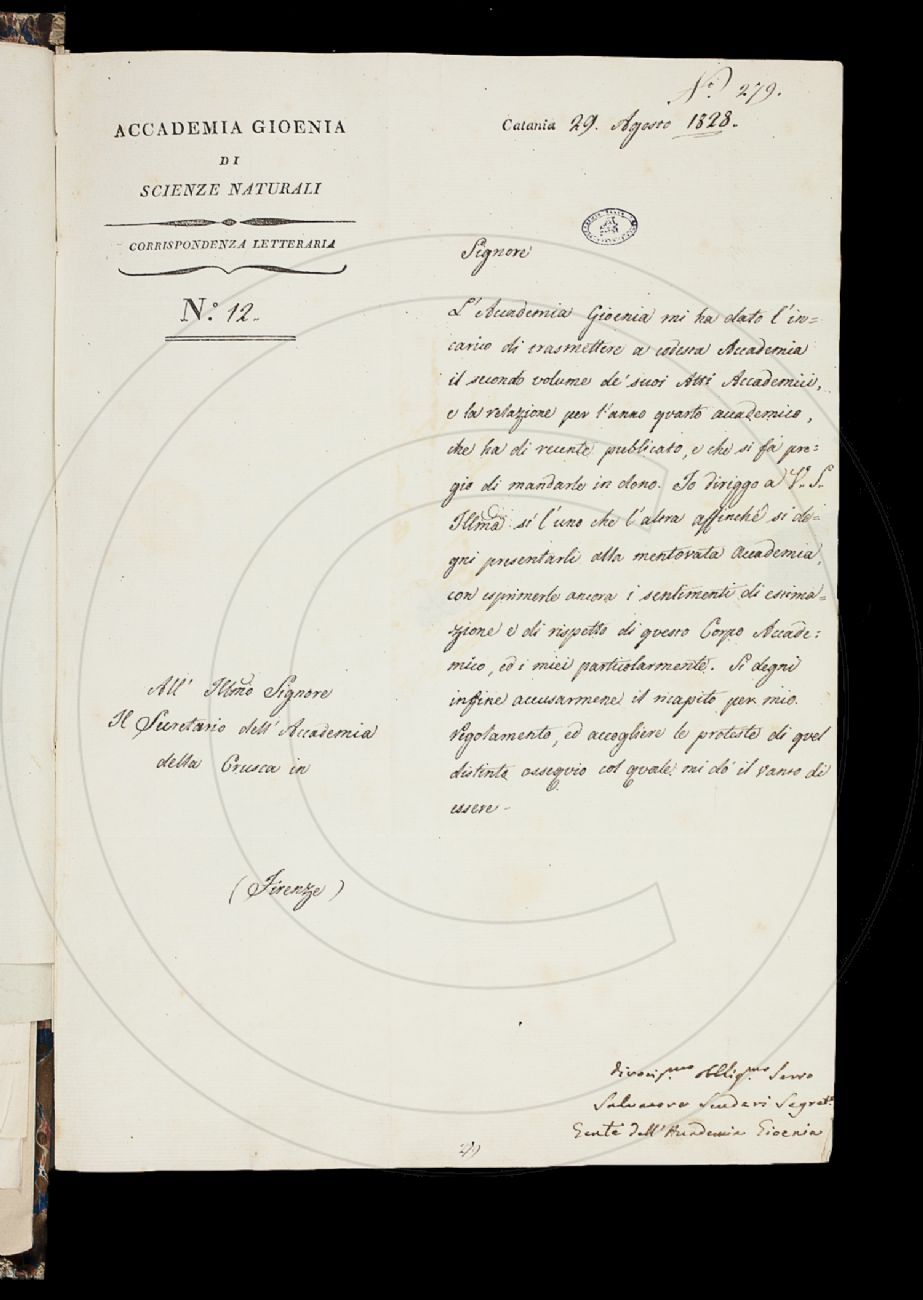 N.º 279.
ACCADEMIA GIOENIA
DI
SCIENZE NATURALI
CORRISPONDENZA LETTERARIA
N.º 12.
Catania 29. Agosto 1828.
Signore
L'Accademia Gioenia mi ha dato l'in=
carico di trasmettere a codesta Accademia
il secondo volume de' suoi Atti Accademici,
e la relazione per l'anno quarto accademico,
che ha di recente publicato, e che si fa pre=
gio di mandarle in dono. Io diriggo a V. S.
Illma sì l'uno che l'altra affinchè si de=
gni presentarli alla mentovata Accademia,
con esprimerle ancora i sentimenti di estima=
zione e di rispetto di questo Corpo Accade=
mico, ed i miei particolarmente. Si degni
infine accusarmene il ricapito per mio
regolamento, ed accogliere le proteste di quel
distinto ossequio col quale mi dò il vanto di
essere -
All' Illmo Signore
Il Secretario dell'Accademia
della Crusca in
(Firenze)
divotis.mo obblig.mo Servo
Salvatore Scuderi Segret.º
Gen.le dell'Accademia Gioenia